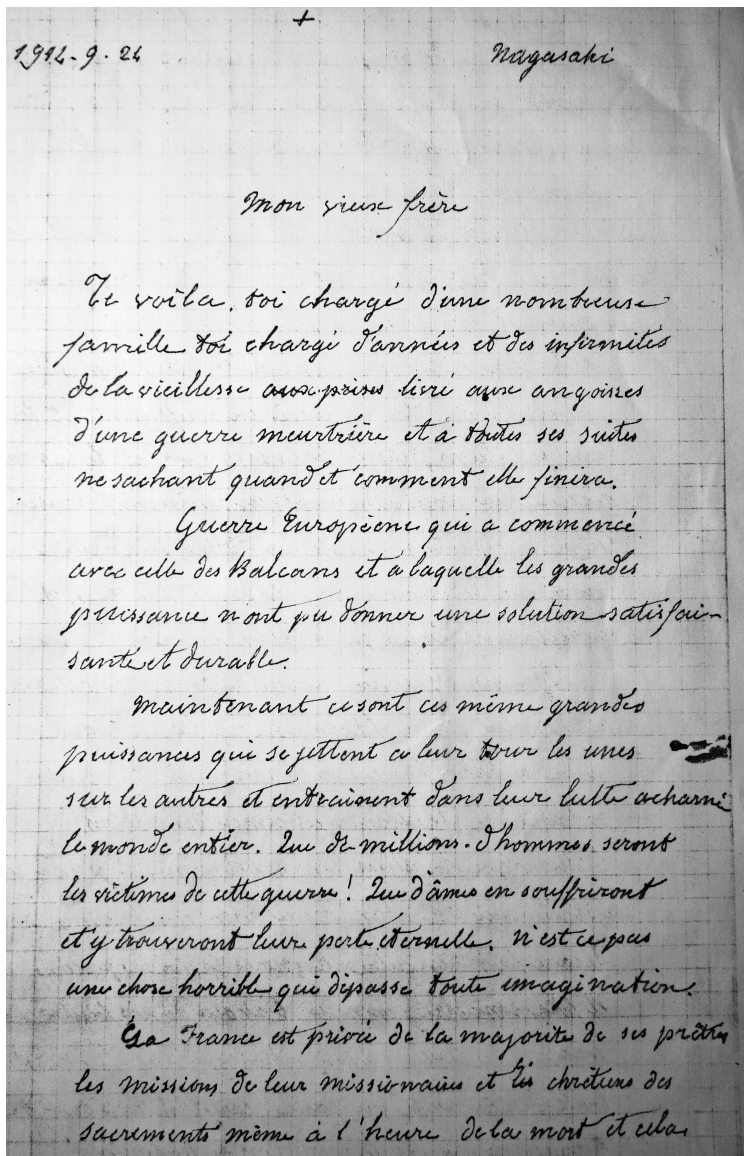 +
1914-9-24 Nagasaki
Mon vieux frère
Te voila, toi chargé d'une nombreuse
famille toi chargé d'années et des infirmités
de la vieillesse aux prises livré aux angoisses
d'une guerre meurtrière et à toutes ses suites
ne sachant quand et comment elle finira.
Guerre Europèene qui a commencé
avec celle des Balcans et a laquelle les grandes
puissance n'ont pu donner une solution satisfai-
sante et durable.
Maintenant ce sont ces même grandes
puissances qui se jettent a leur tour les unes
sur les autres et entrainent dans leur lutte acharné
le monde entier. Que de millions d'hommes seront
les victimes de cette guerre! Que d'âmes en souffriront
et y trouveront leur perte eternelle. N'est ce pas
une chose horrible qui dépasse toute imagination.
La France est privée de la majorite de ses prêtres
les missions de leur missionaires et les chrétiens des
sacrements même à l'heure de la mort et cela